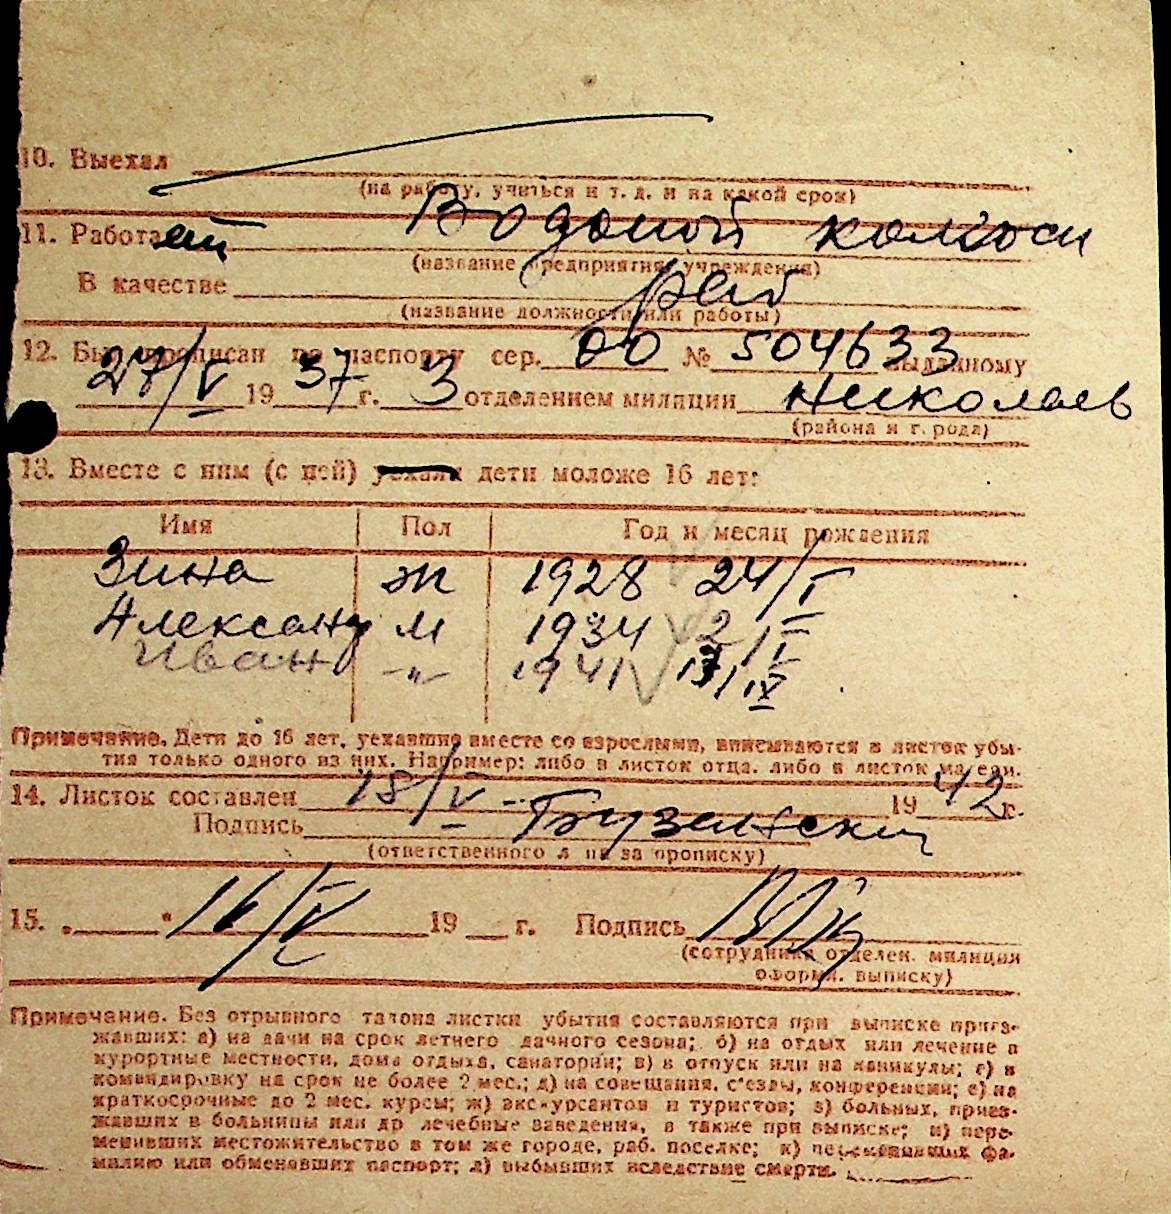 10. Выехал
(на работу, учиться и т. д. и на какой срок)
11. Работает Водоной колхоз
(название предприятия, учреждения)
В качестве раб
(название должности или работы)
12. Был прописан по паспорту сер. 00 № 504633 выданному
27/V 1937 г. 3 отделением милиции Николаев
(района и города)
13. Вместе с ним (с ней) уехали дети моложе 16 лет:
Имя Пол Год и месяц рождения
Зина ж 1928 24/I
Александр м 1934 2/I
Иван -"- 1941 13/IX
Примечание. Дети до 16 лет, уехавшие вместе со взрослыми, вписываются в листок убы-
тия только одного из них. Например: либо в листок отца, либо в листок матери.
14. Листок составлен 15/V 1942 г.
Подпись
(ответственного лица за прописку)
15. 16/V 19 г. Подпись
(сотрудника отделен. милиции
оформ. выписку)
Примечание. Без отрывного талона листки убытия составляются при выписке приез-
жавших: а) на дачи на срок летнего дачного сезона; б) на отдых или лечение в
курортные местности, дома отдыха, санатории; в) в отпуск или на каникулы; г) в
командировку на срок не более 2 мес.; д) на совещания, с'езды, конференции; е) на
краткосрочные до 2 мес. курсы; ж) экскурсантов и туристов; з) больных, приез-
жавших в больницы или др лечебные заведения, а также при выписке; и) пере-
менивших местожительство в том же городе, раб. поселке; к) переменивших фа-
милию или обменявших паспорт; л) выбывших вследствие смерти.